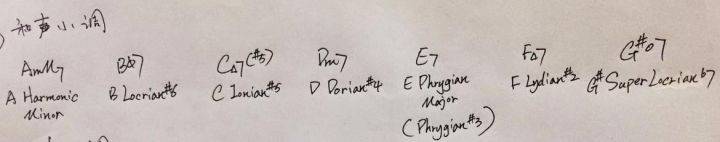 ) 和声小调
AmM7 Bø7 CΔ7(#5) Dm7 E7 FΔ7 G#o7
A Harmonic Minor B Locrian#6 C Ionian#5 D Dorian#4 E Phrygian Major (Phrygian#3) F Lydian#2 G# Super Locrian b7